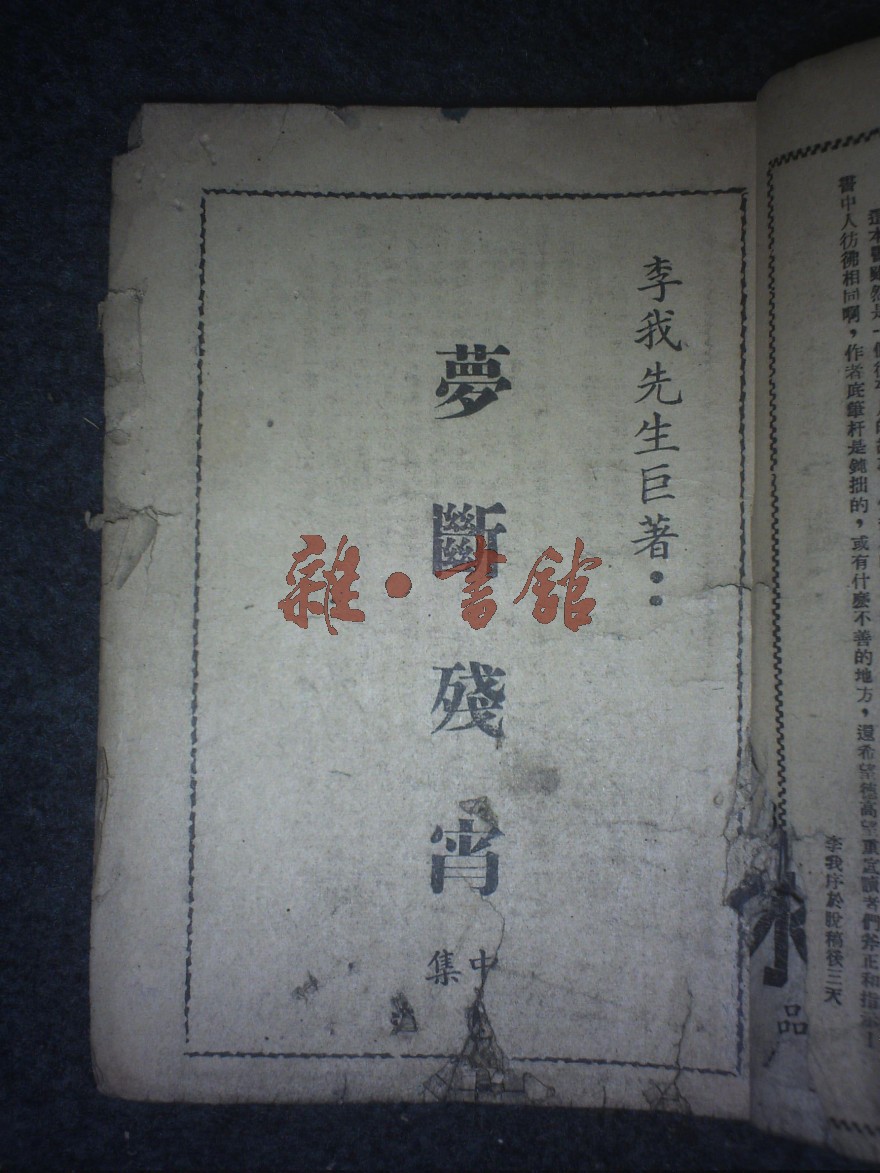 李我先生巨著：
夢斷殘宵
中集
雜·書館
是一個
書中人彷彿相同啊，作者底筆杆是鈍拙的，或有什麼不善的地方，還希望德高望重底讀者們斧正和指
李我序於脫稿後三天
品